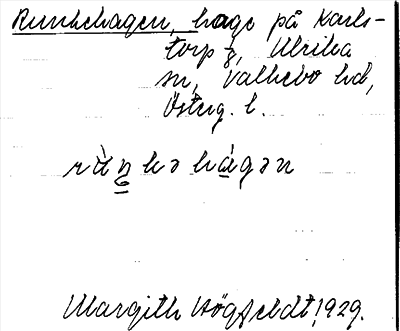 Runkehagen, hage på Karls-
torp, Ulrika
sn, Valkebo hd,
Österg. l.
rùŋkəhágən
Margith Högfeldt, 1929.